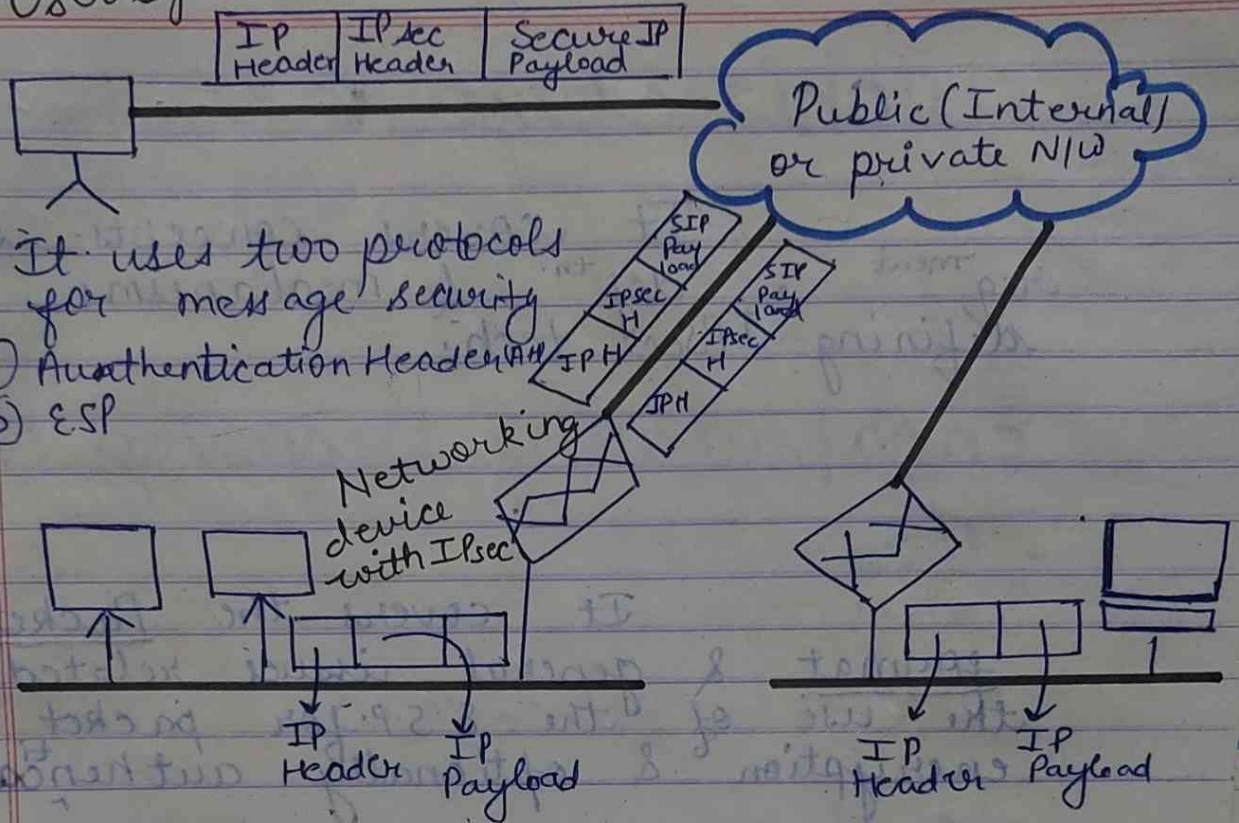 IP Header
IPsec Header
Secure IP Payload
Public (Internal)
or private N/W
It uses two protocols
for message security
Aunthentication Header (AH)
ESP
SIP
Pay
load
IPsec
H
IPH
SIP
Pay
load
IPsec
H
IPH
Networking
device
with IPsec
IP
Header
IP
Payload
IP
Header
IP
Payload